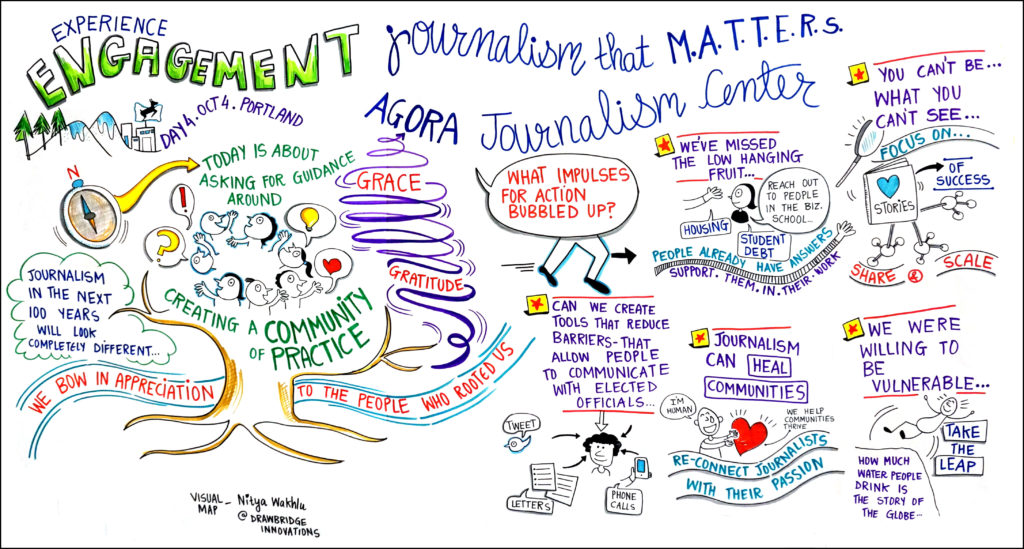 EXPERIENCE
ENGAGEMENT
DAY 4. OCT 4. PORTLAND
JOURNALISM that M.A.T.T.E.R.S.
AGORA JOURNALISM Center
N
TODAY IS ABOUT
ASKING FOR GUIDANCE
AROUND
!
?
CREATING A COMMUNITY
OF PRACTICE
GRACE
GRATITUDE
JOURNALISM
IN THE NEXT
100 YEARS
WILL LOOK
COMPLETELY DIFFERENT...
WE BOW IN APPRECIATION
TO THE PEOPLE WHO ROOTED US
VISUAL MAP - Nitya Wakhlu
@ DRAWBRIDGE
INNOVATIONS
WHAT IMPULSES
FOR ACTION
BUBBLED UP?
WE'VE MISSED
THE LOW HANGING
FRUIT...
HOUSING
STUDENT
DEBT
REACH OUT
TO PEOPLE
IN THE BIZ.
SCHOOL...
PEOPLE ALREADY HAVE ANSWERS
SUPPORT. THEM. IN. THEIR. WORK
YOU CAN'T BE...
WHAT YOU
CAN'T SEE...
FOCUS ON...
STORIES
OF
SUCCESS
SHARE &
SCALE
CAN WE CREATE
TOOLS THAT REDUCE
BARRIERS-THAT
ALLOW PEOPLE
TO COMMUNICATE
WITH ELECTED
OFFICIALS...
TWEET
LETTERS
PHONE
CALLS
JOURNALISM
CAN HEAL
COMMUNITIES
I'M
HUMAN
WE HELP
COMMUNITIES
THRIVE
RE-CONNECT JOURNALISTS
WITH THEIR PASSION
WE WERE
WILLING TO
BE
VULNERABLE...
TAKE
THE
LEAP
HOW MUCH
WATER PEOPLE
DRINK IS
THE STORY OF
THE GLOBE...